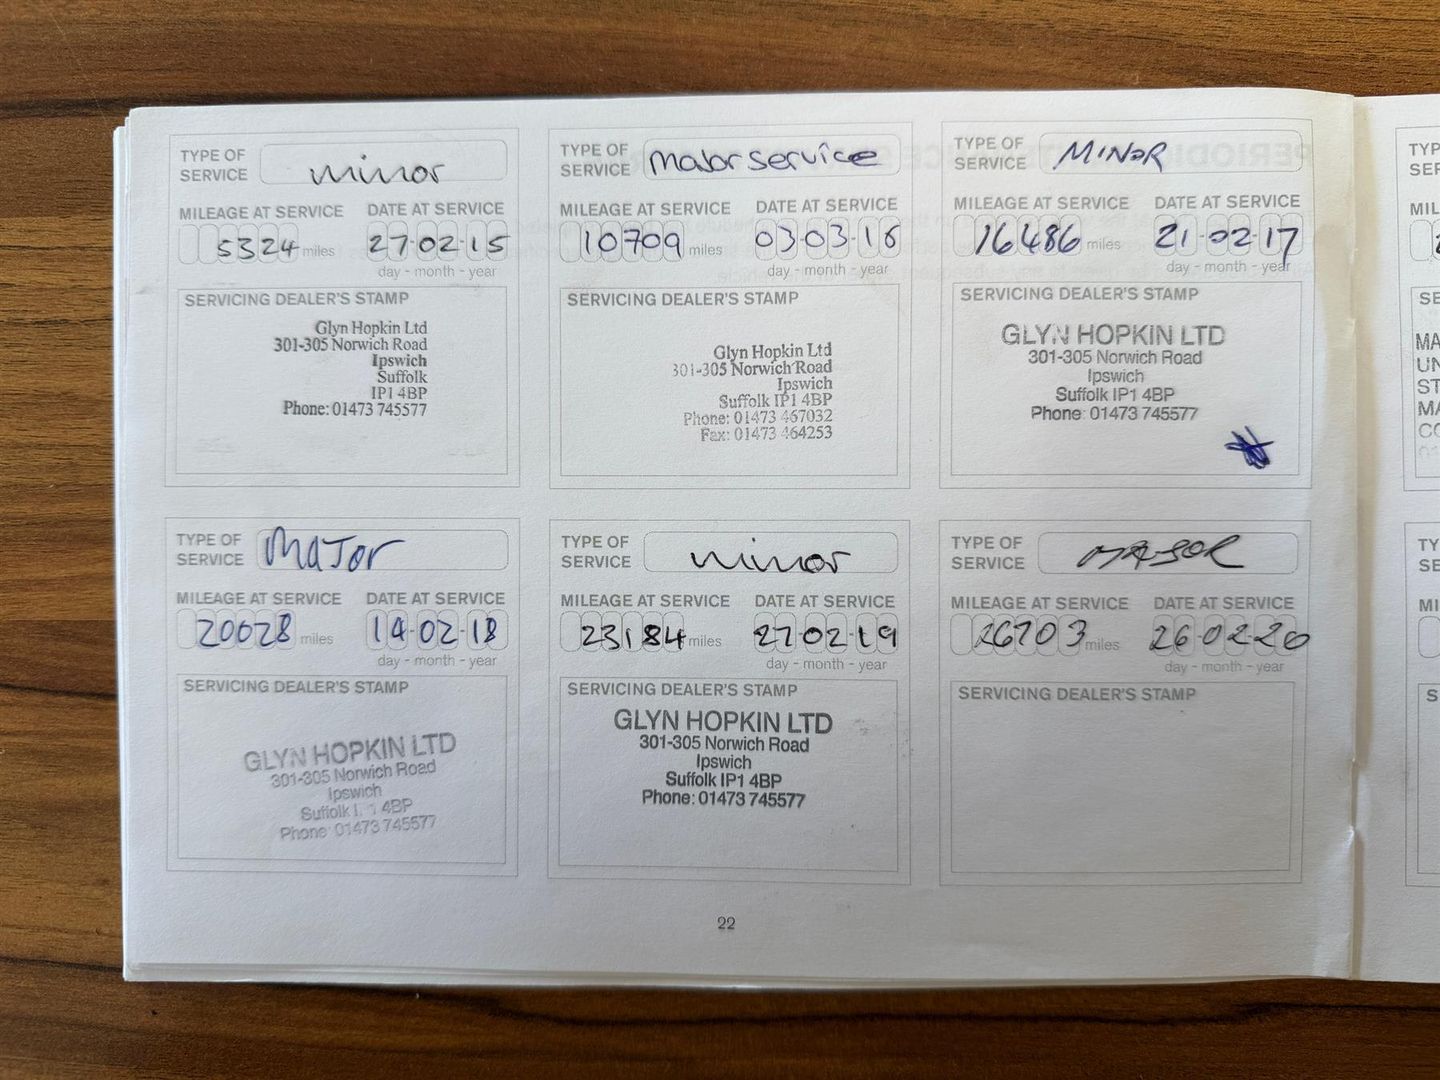 TYPE OF SERVICE minor
MILEAGE AT SERVICE DATE AT SERVICE
5324 miles 27-02-15
day - month - year
SERVICING DEALER'S STAMP
Glyn Hopkin Ltd
301-305 Norwich Road
Ipswich
Suffolk
IP1 4BP
Phone: 01473 745577
TYPE OF SERVICE major service
MILEAGE AT SERVICE DATE AT SERVICE
10709 miles 03-03-16
day - month - year
SERVICING DEALER'S STAMP
Glyn Hopkin Ltd
301-305 Norwich Road
Ipswich
Suffolk IP1 4BP
Phone: 01473 467032
Fax: 01473 464253
TYPE OF SERVICE MINOR
MILEAGE AT SERVICE DATE AT SERVICE
16486 miles 21-02-17
day - month - year
SERVICING DEALER'S STAMP
GLYN HOPKIN LTD
301-305 Norwich Road
Ipswich
Suffolk IP1 4BP
Phone: 01473 745577
TYPE OF SERVICE MAJOR
MILEAGE AT SERVICE DATE AT SERVICE
20028 miles 14-02-18
day - month - year
SERVICING DEALER'S STAMP
GLYN HOPKIN LTD
301-305 Norwich Road
Ipswich
Suffolk 4BP
Phone 01473 745577
TYPE OF SERVICE minor
MILEAGE AT SERVICE DATE AT SERVICE
23184 miles 27-02-19
day - month - year
SERVICING DEALER'S STAMP
GLYN HOPKIN LTD
301-305 Norwich Road
Ipswich
Suffolk IP1 4BP
Phone: 01473 745577
TYPE OF SERVICE MAJOR
MILEAGE AT SERVICE DATE AT SERVICE
26703 miles 26-02-20
day - month - year
SERVICING DEALER'S STAMP
22